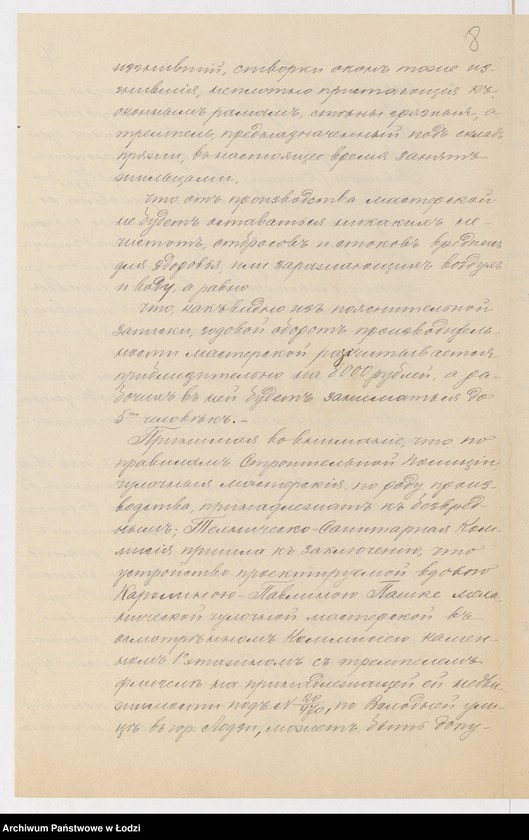 8
изгнившій, створки оконъ тоже из-
гнившія, неплотно пристающія къ
оконнымъ рамамъ, стѣны грязныя, а
тремпель, предназначенный подъ складъ
пряжи, въ настоящее время занятъ
жильцами.
Что отъ производства мастерской
не будетъ оставаться никакихъ не-
чистотъ, отбросовъ и стоковъ вредныхъ
для здоровья, или заражающихъ воздухъ
и воду, а равно
что, какъ видно изъ пояснительной
записки, годовой оборотъ производитель-
ности мастерской расчитывается
приблизительно на 8000 рублей, а ра-
бочихъ въ ней будетъ заниматься до
5 человѣкъ.-
Принимая во вниманіе, что по
правиламъ Строительной Полиціи
чулочныя мастерскія, по роду произ-
водства, принадлежатъ къ безвред-
нымъ; Техническо-Санитарная Ком-
мисія пришла къ заключенію, что
устройство проектируемой вдовою
Каролиною-Павлиною Пашке меха-
нической чулочной мастерской въ
осмотрѣнномъ Коммисіею камен-
номъ 1 этажномъ съ тремпелемъ
флигелѣ на принадлежащей ей недви-
жимости подъ №, по Заходней ули-
цѣ въ гор. Лодзи, можетъ быть допу-
Archiwum Państwowe w Łodzi